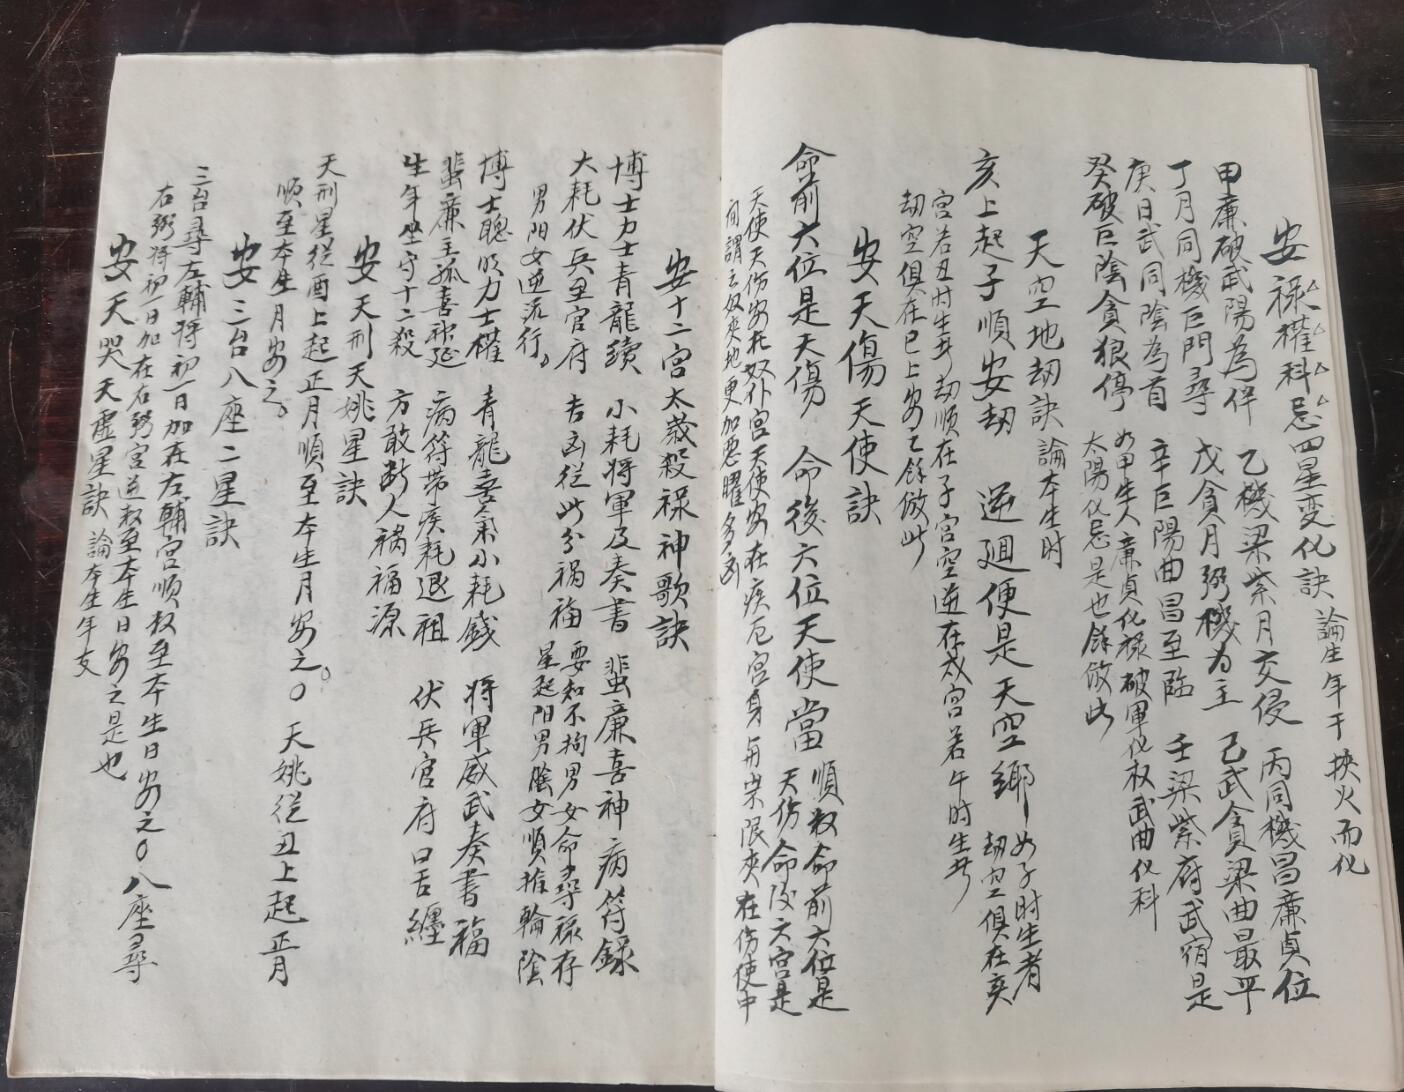 安祿權科忌四星变化訣 論生年干挾火而化
甲廉破武陽為伴 乙機梁紫月交侵 丙同機昌廉貞位
丁月同機巨門尋 戊貪月弼機为主 己武貪梁曲最平
庚日武同陰為首 辛巨陽曲昌至臨 壬梁紫府武宿是
癸破巨陰貪狼停 如甲生人廉貞化祿破軍化权武曲化科
太陽化忌是也餘倣此
天空地劫訣 論本生时
亥上起子順安劫 逆廻便是天空鄉 如子时生者
劫空俱在亥
宮若丑时生者劫順在子宮空逆在戍宮若午时生者
劫空俱在巳上安之餘倣此
安天傷天使訣
命前六位是天傷 命後六位天使當 順数命前六位是
天伤命後六宮是
天使天伤安在奴仆宮天使安在疾厄宮身命岁限夾在伤使中
间謂之奴夾地更加恶曜多凶
安十二宮太歲殺祿神歌訣
博士力士青龍續 小耗將軍及奏書 蜚廉喜神病符録
大耗伏兵至官府 吉凶从此分禍福 要知不拘男女命尋祿存
星起阳男陰女順推輪陰
男阳女逆流行。
博士聰明力士權 青龍喜气小耗錢 將軍威武奏書福
蜚廉主孤喜神延 病符帶疾耗退祖 伏兵官府口舌纏
生年坐守十二殺 方敢断人禍福源
安天刑天姚星訣
天刑星从酉上起正月順至本生月安之。〇天姚从丑上起正月
順至本生月安之。
安三台八座二星訣
三台尋左輔将初一日加在左輔宮順数至本生日安之〇八座尋
右弼将初一日加在右弼宮逆数至本生日安之是也
安天哭天虛星訣 論本生年支